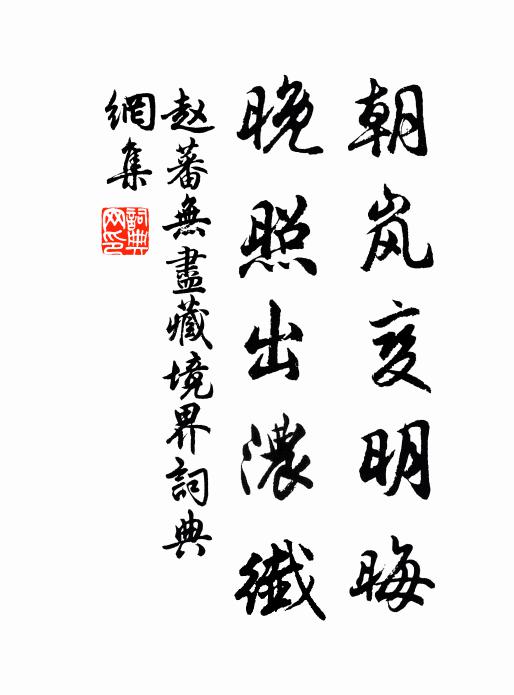 朝岚变明晦
晚照出濃纖
赵蕃無盡藏境界詞典
網集
詞典网印